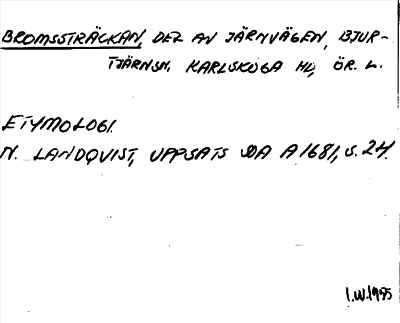 BROMSSTRÄCKAN, DEL AV JÄRNVÄGEN, BJUR-
TJÄRNSN, KARLSKOGA HD, ÖR. L.
ETYMOLOGI.
N. LANDQVIST, UPPSATS SOA A1681, S. 24.
I.W.1955